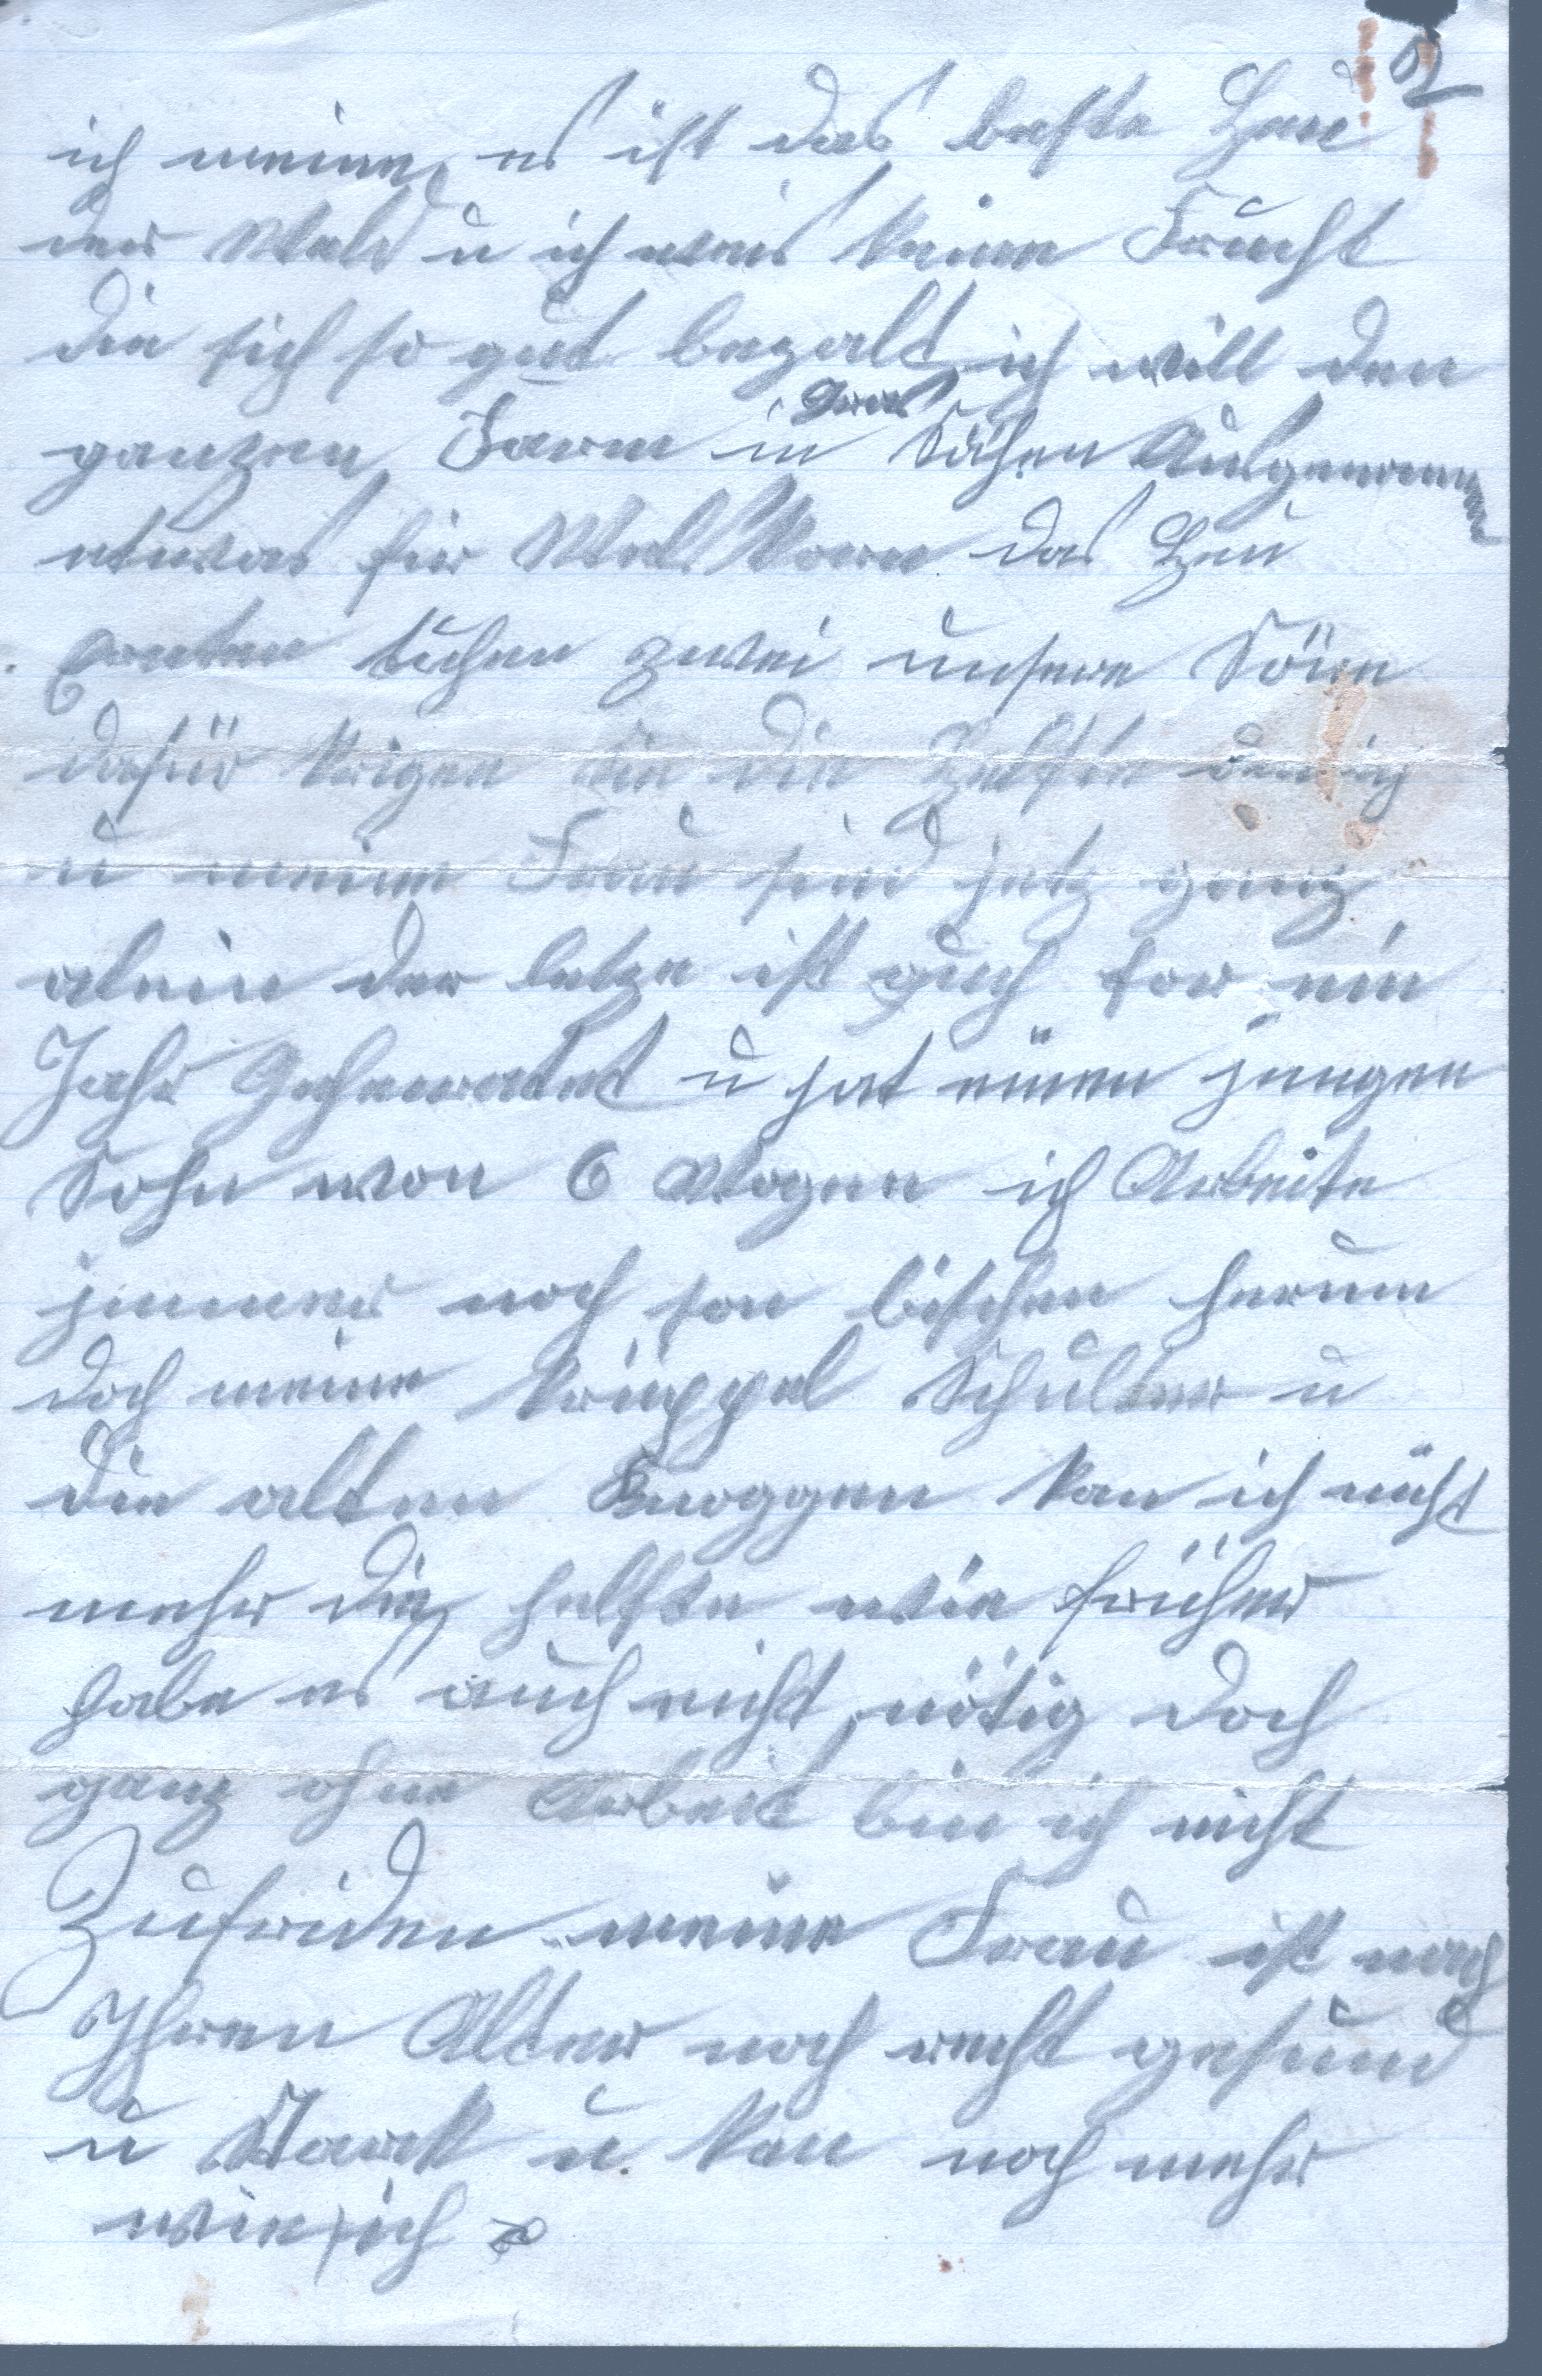 2
ich meine es ist das beste Heu
der Welt u ich weis keine Frucht
die sich so gut bezalt ich will den
ganzen Farm in Gras Sähen Ausgenomen
etwas für Mel Korn das Heu
Ernten tuhen zwei unsere Söne
dafür krigen sie die Helfte den ich
u meine Frau sind jetz ganz
alein der letze ist auch for ein
Jahr Geheiratet u hat einen jungen
Sohn von 6 Wogen ich Arbeite
jmmer noch son bischen herum
doch meine Krüppel Schulter u
die alten Knoggen kan ich nicht
mehr die helfte wie früher
habe es auch nicht nötig doch
ganz ohne Arbeit bin ich nicht
Zufriden meine Frau ist nach
Ihren Alter noch recht gesund
u Stark u kan noch mehr
wie ich